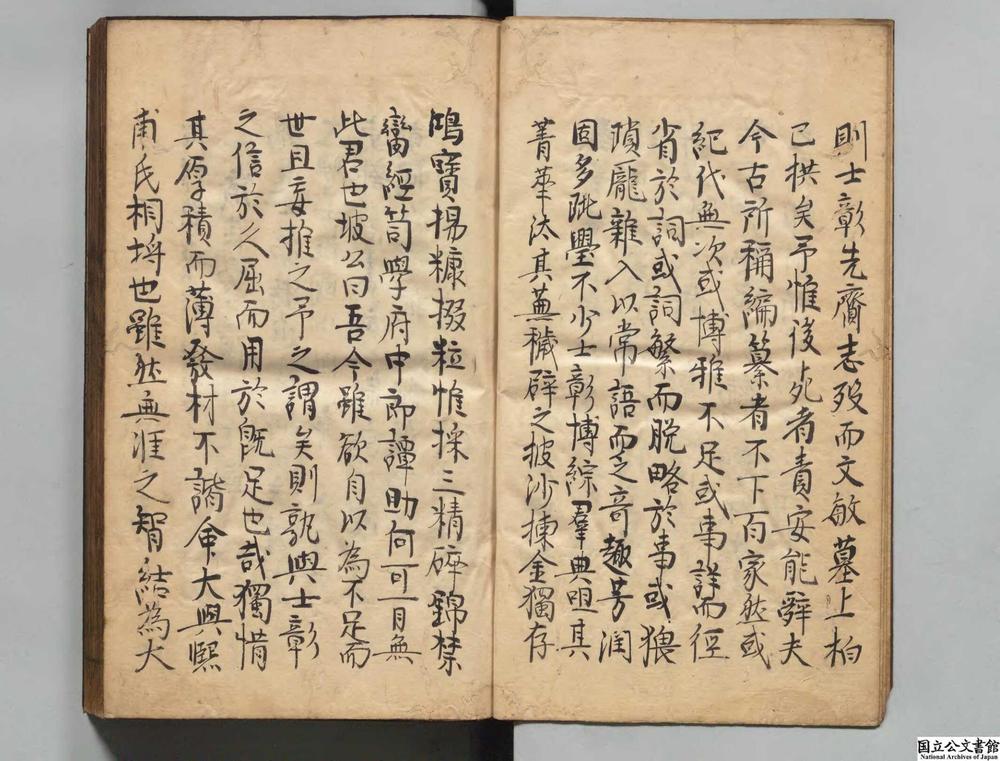 則士彰先齎志歿而文敏墓上栢
已拱矣予惟後死者責安能辭夫
今古所稱編纂者不下百家然或
紀代無次或博雅不足或事詳而徑
省於詞或詞繁而脫略於事或猥
瑣龐雜入以常語而乏奇趣芳潤
固多疵璺不少士彰博綜羣典咀其
菁華汰其蕪穢辟之披沙揀金獨存
鴻寶揚糠掇粒惟採三精碎錦禁
臠經笥學府中郎譚助何可一日無
此君也坡公曰吾今雖欲自以為不足而
世且妄推之予之謂矣則孰與士彰
之信於久屈而用於旣足也哉獨惜
其厚積而薄發材不諧命大與熙
甫氏相埒也雖然無涯之智結為大
国立公文書館
National Archives of Japan